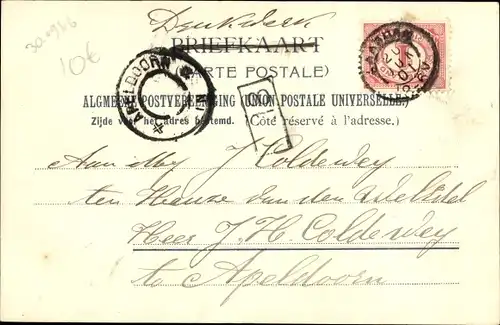 Drukwerk
BRIEFKAART
(CARTE POSTALE)
ALGMEENE POSTVEREENIGING (UNION POSTALE UNIVERSELLE)
Zijde voor het adres bestemd. (Côté réservé à l'adresse.)
APELDOORN
10€
Aan J Coldewey
ten Huize van den
Heer J. H. Coldewey
te Apeldoorn